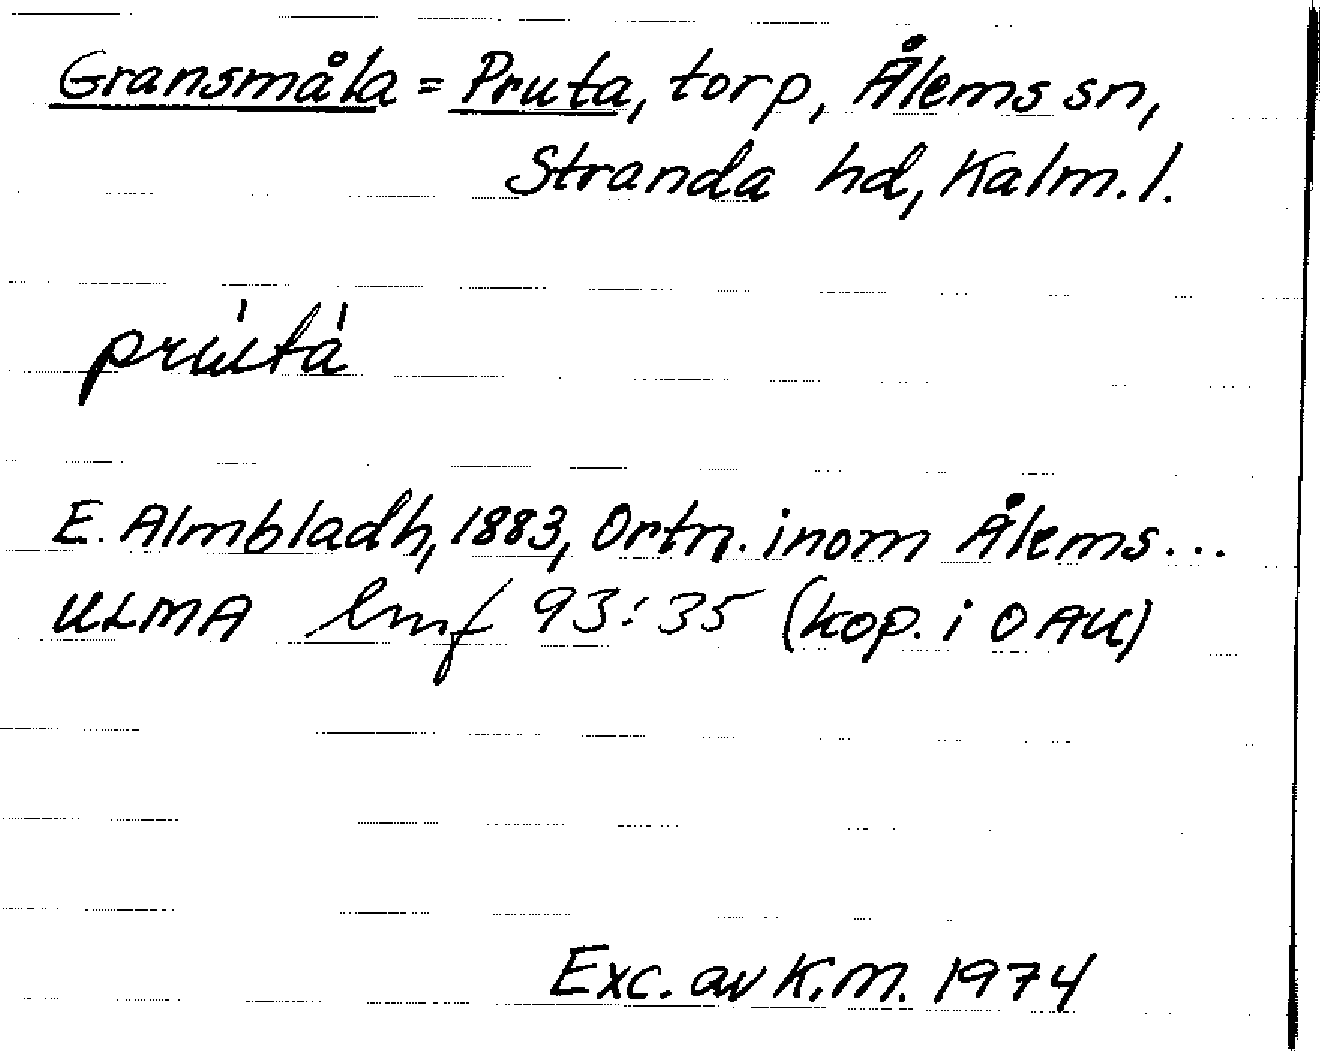 Gransmåla = Pruta, torp, Ålems sn,
Stranda hd, Kalm. l.
prútá
E. Almbladh, 1883, Ortn. inom Ålems...
ULMA lmf 93:35 (kop. i OAU)
Exc. av K.M. 1974